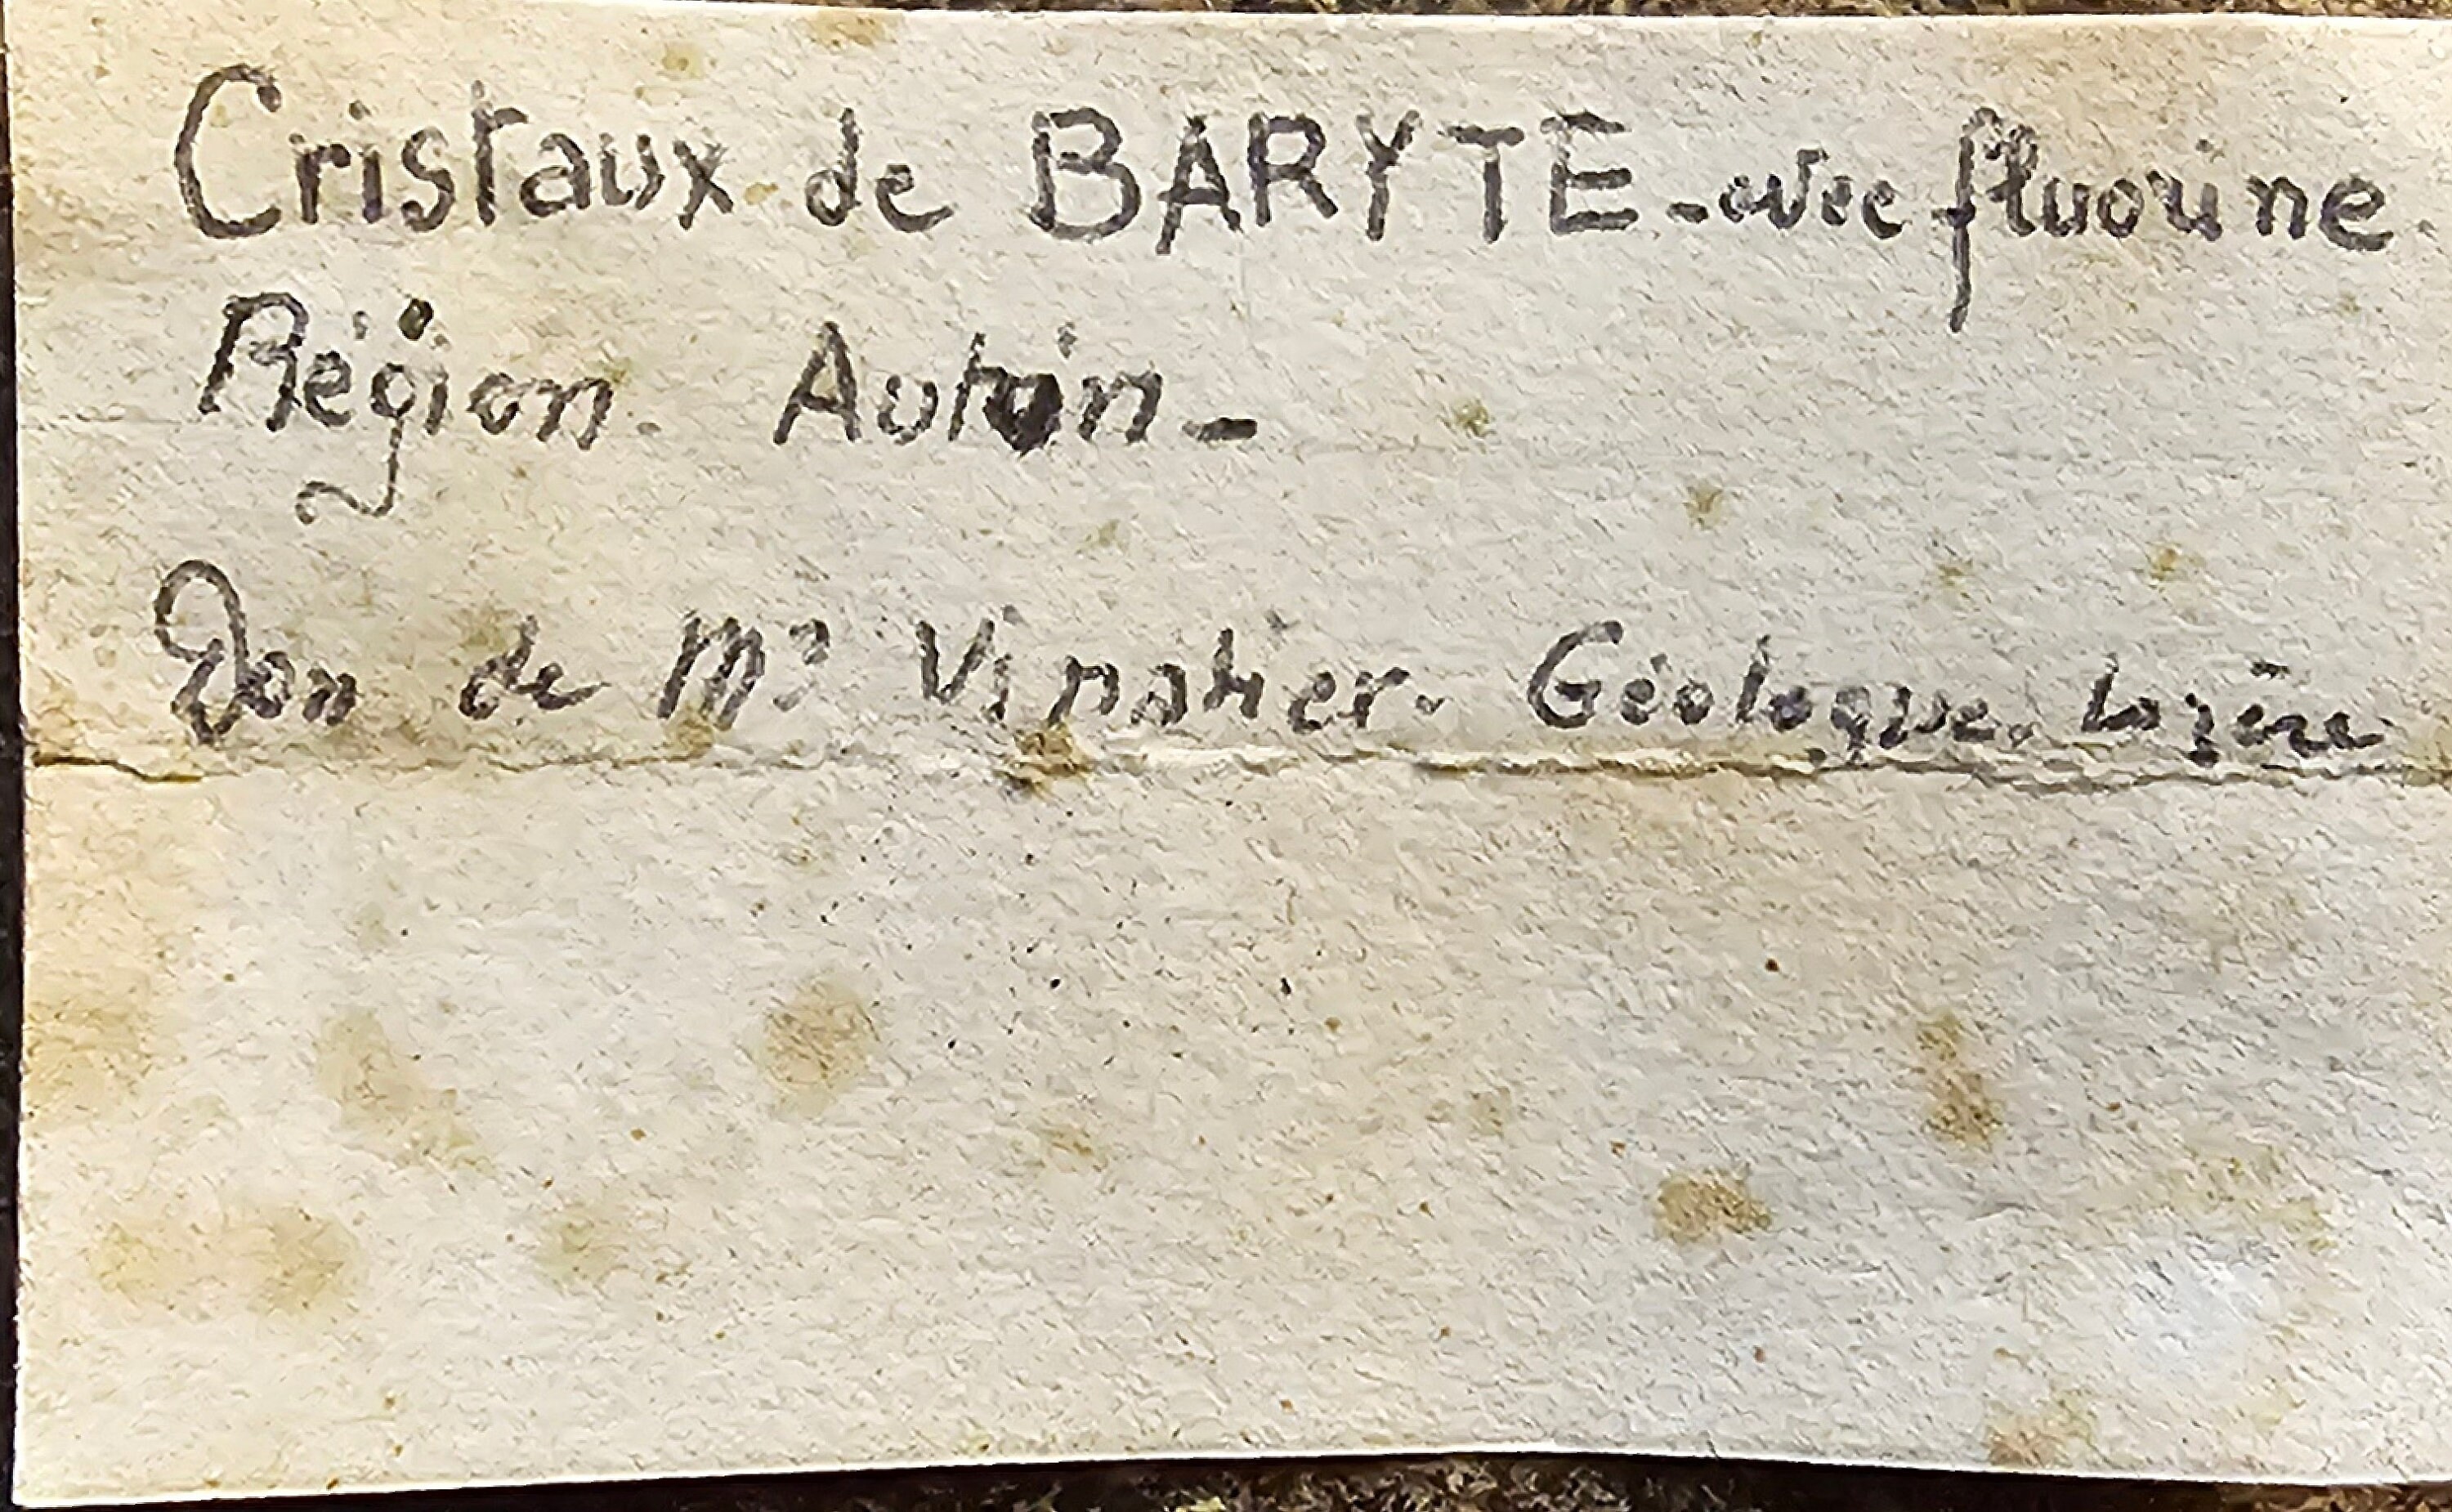 Cristaux de BARYTE - avec fluorine
Région Autun -
Don de Mr Vinatier. Géologue. Lozère